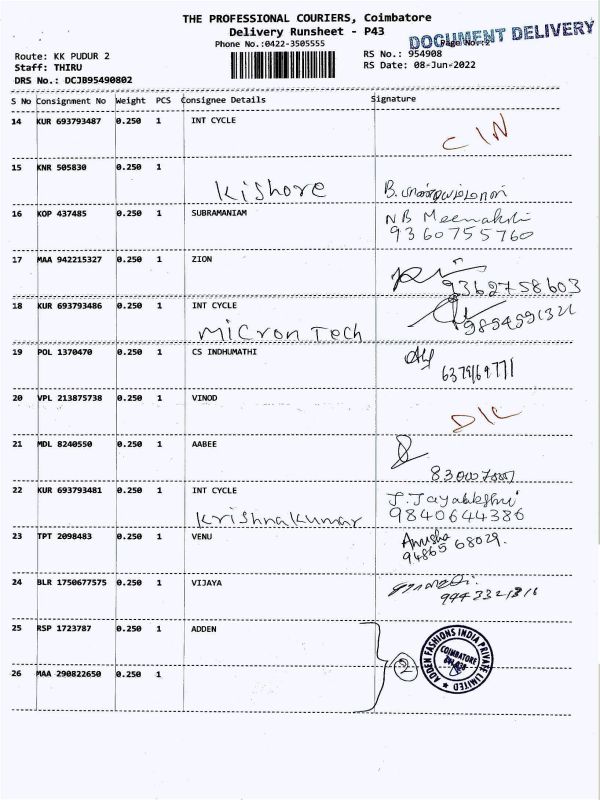 THE PROFESSIONAL COURIERS, Coimbatore
Delivery Runsheet - P43
DOCUMENT DELIVERY
Phone No.:0422-3505555
Page No.:2
Route: KK PUDUR 2
RS No.: 954908
Staff: THIRU
RS Date: 08-Jun-2022
DRS No.: DCJB95490802
S No Consignment No Weight PCS Consignee Details Signature
14 KUR 693793487 0.250 1 INT CYCLE
CIN
15 KNR 505830 0.250 1
Kishore
16 KOP 437485 0.250 1 SUBRAMANIAM NB Meenakshi
9360755760
17 MAA 942215327 0.250 1 ZION
9362758603
18 KUR 693793486 0.250 1 INT CYCLE
Micron Tech 9894591321
19 POL 1370470 0.250 1 CS INDHUMATHI
20 VPL 213875738 0.250 1 VINOD
D/C
21 MDL 8240550 0.250 1 AABEE
22 KUR 693793481 0.250 1 INT CYCLE
Krishnakumar 9840644386
23 TPT 2098483 0.250 1 VENU Anusha
94865 68029.
24 BLR 1750677575 0.250 1 VIJAYA
25 RSP 1723787 0.250 1 ADDEN
2
ADDEN FASHIONS INDIA PRIVATE LIMITED
COIMBATORE
26 MAA 290822650 0.250 1